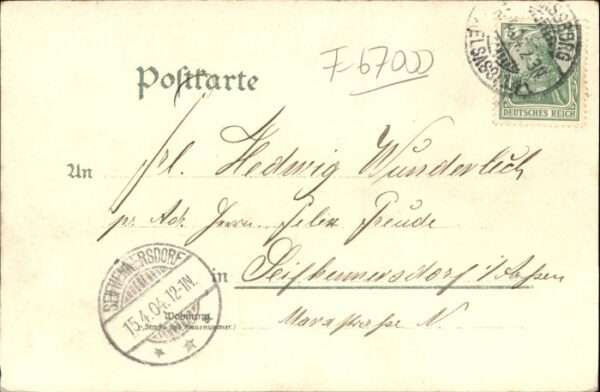 STRASSBURG
F-67000
Postkarte
DEUTSCHES REICH
An Frl. Hedwig Wunderlich
pr. Adr. Herrn Felix Freude
in Seifhennersdorf i/Sachsen
SEIFHENNERSDORF
15.4.04.12-1N.
Wohnung
(Straße und Hausnummer)